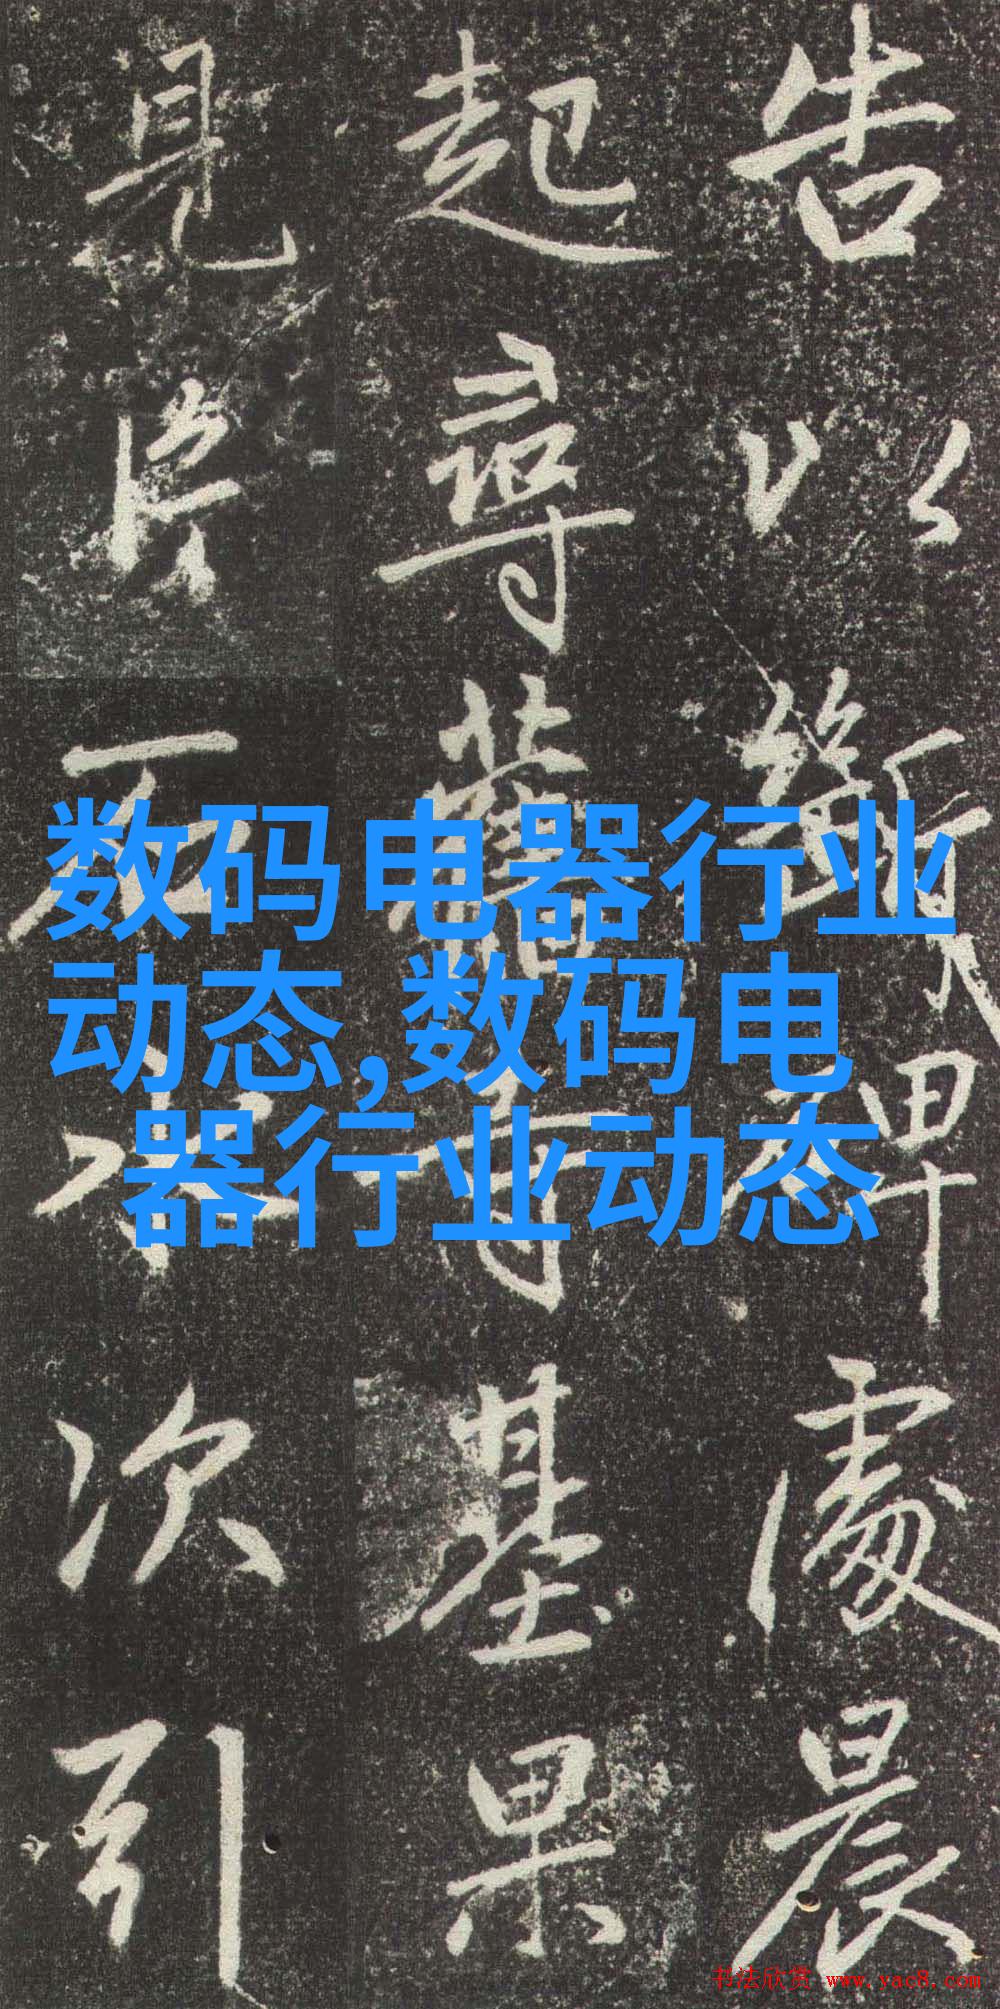 告以斷碑處晨
起尋舊基果
見片石水次引
数码电器行业
动态,数码电
器行业动态
书法欣赏 www.yac8.com